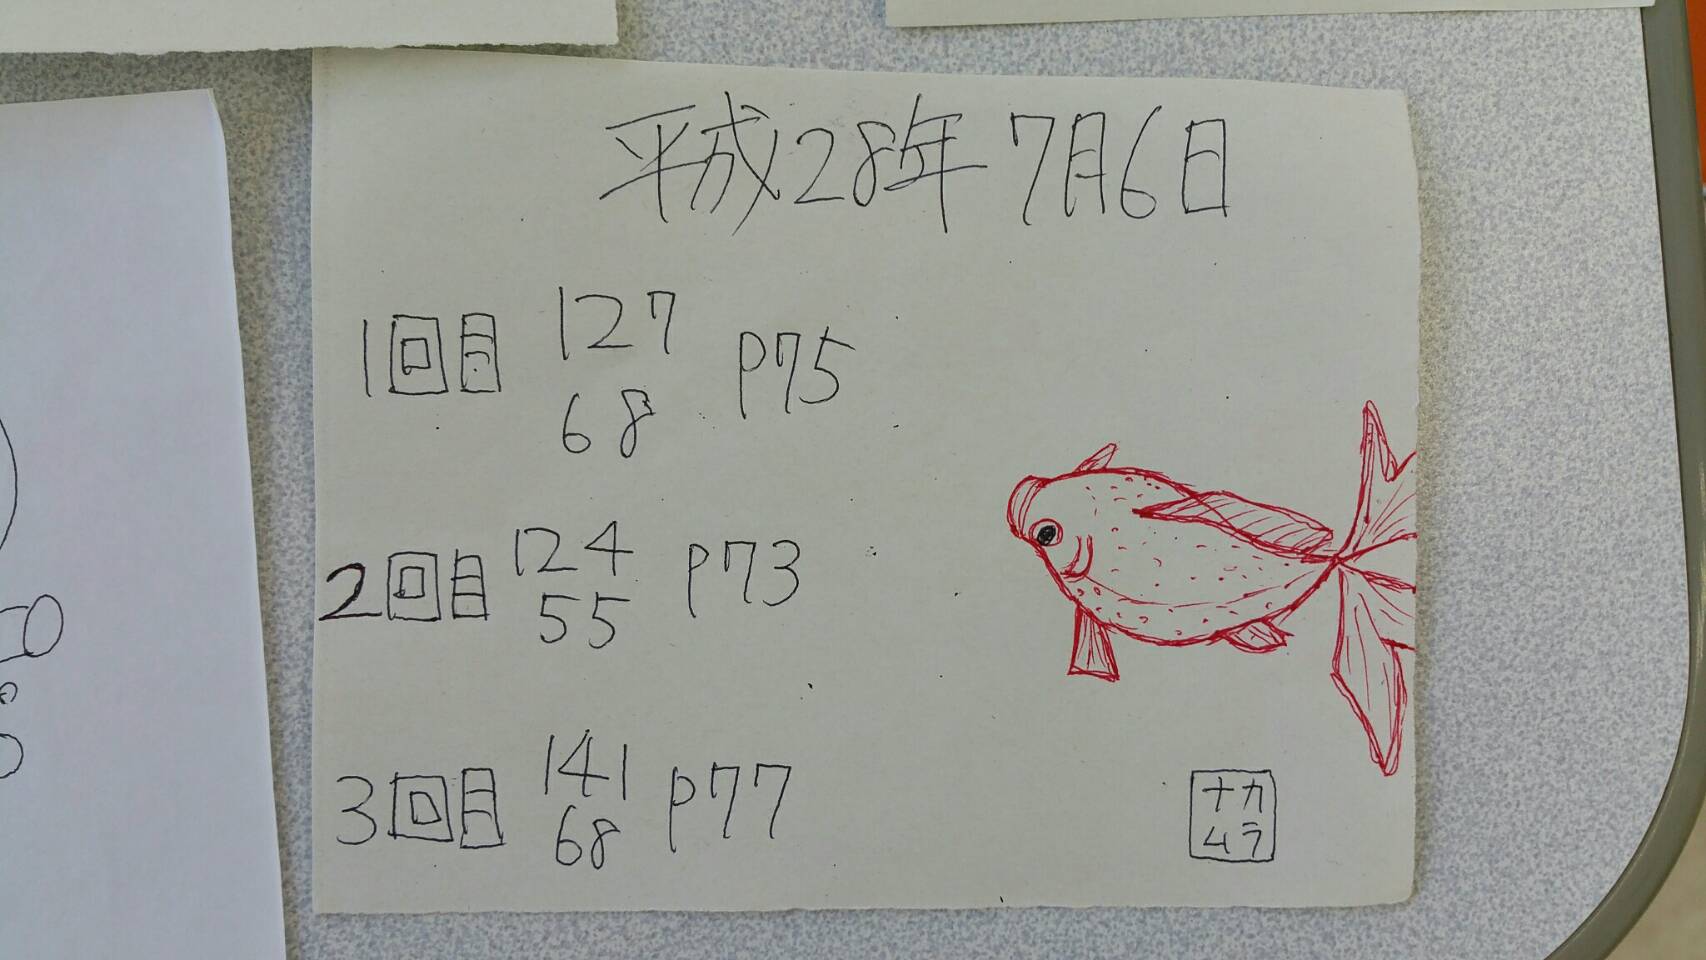 平成28年7月6日
1回目 127 P75
68
2回目 124 P73
55
3回目 141 P77
68
ナカ
ムラ